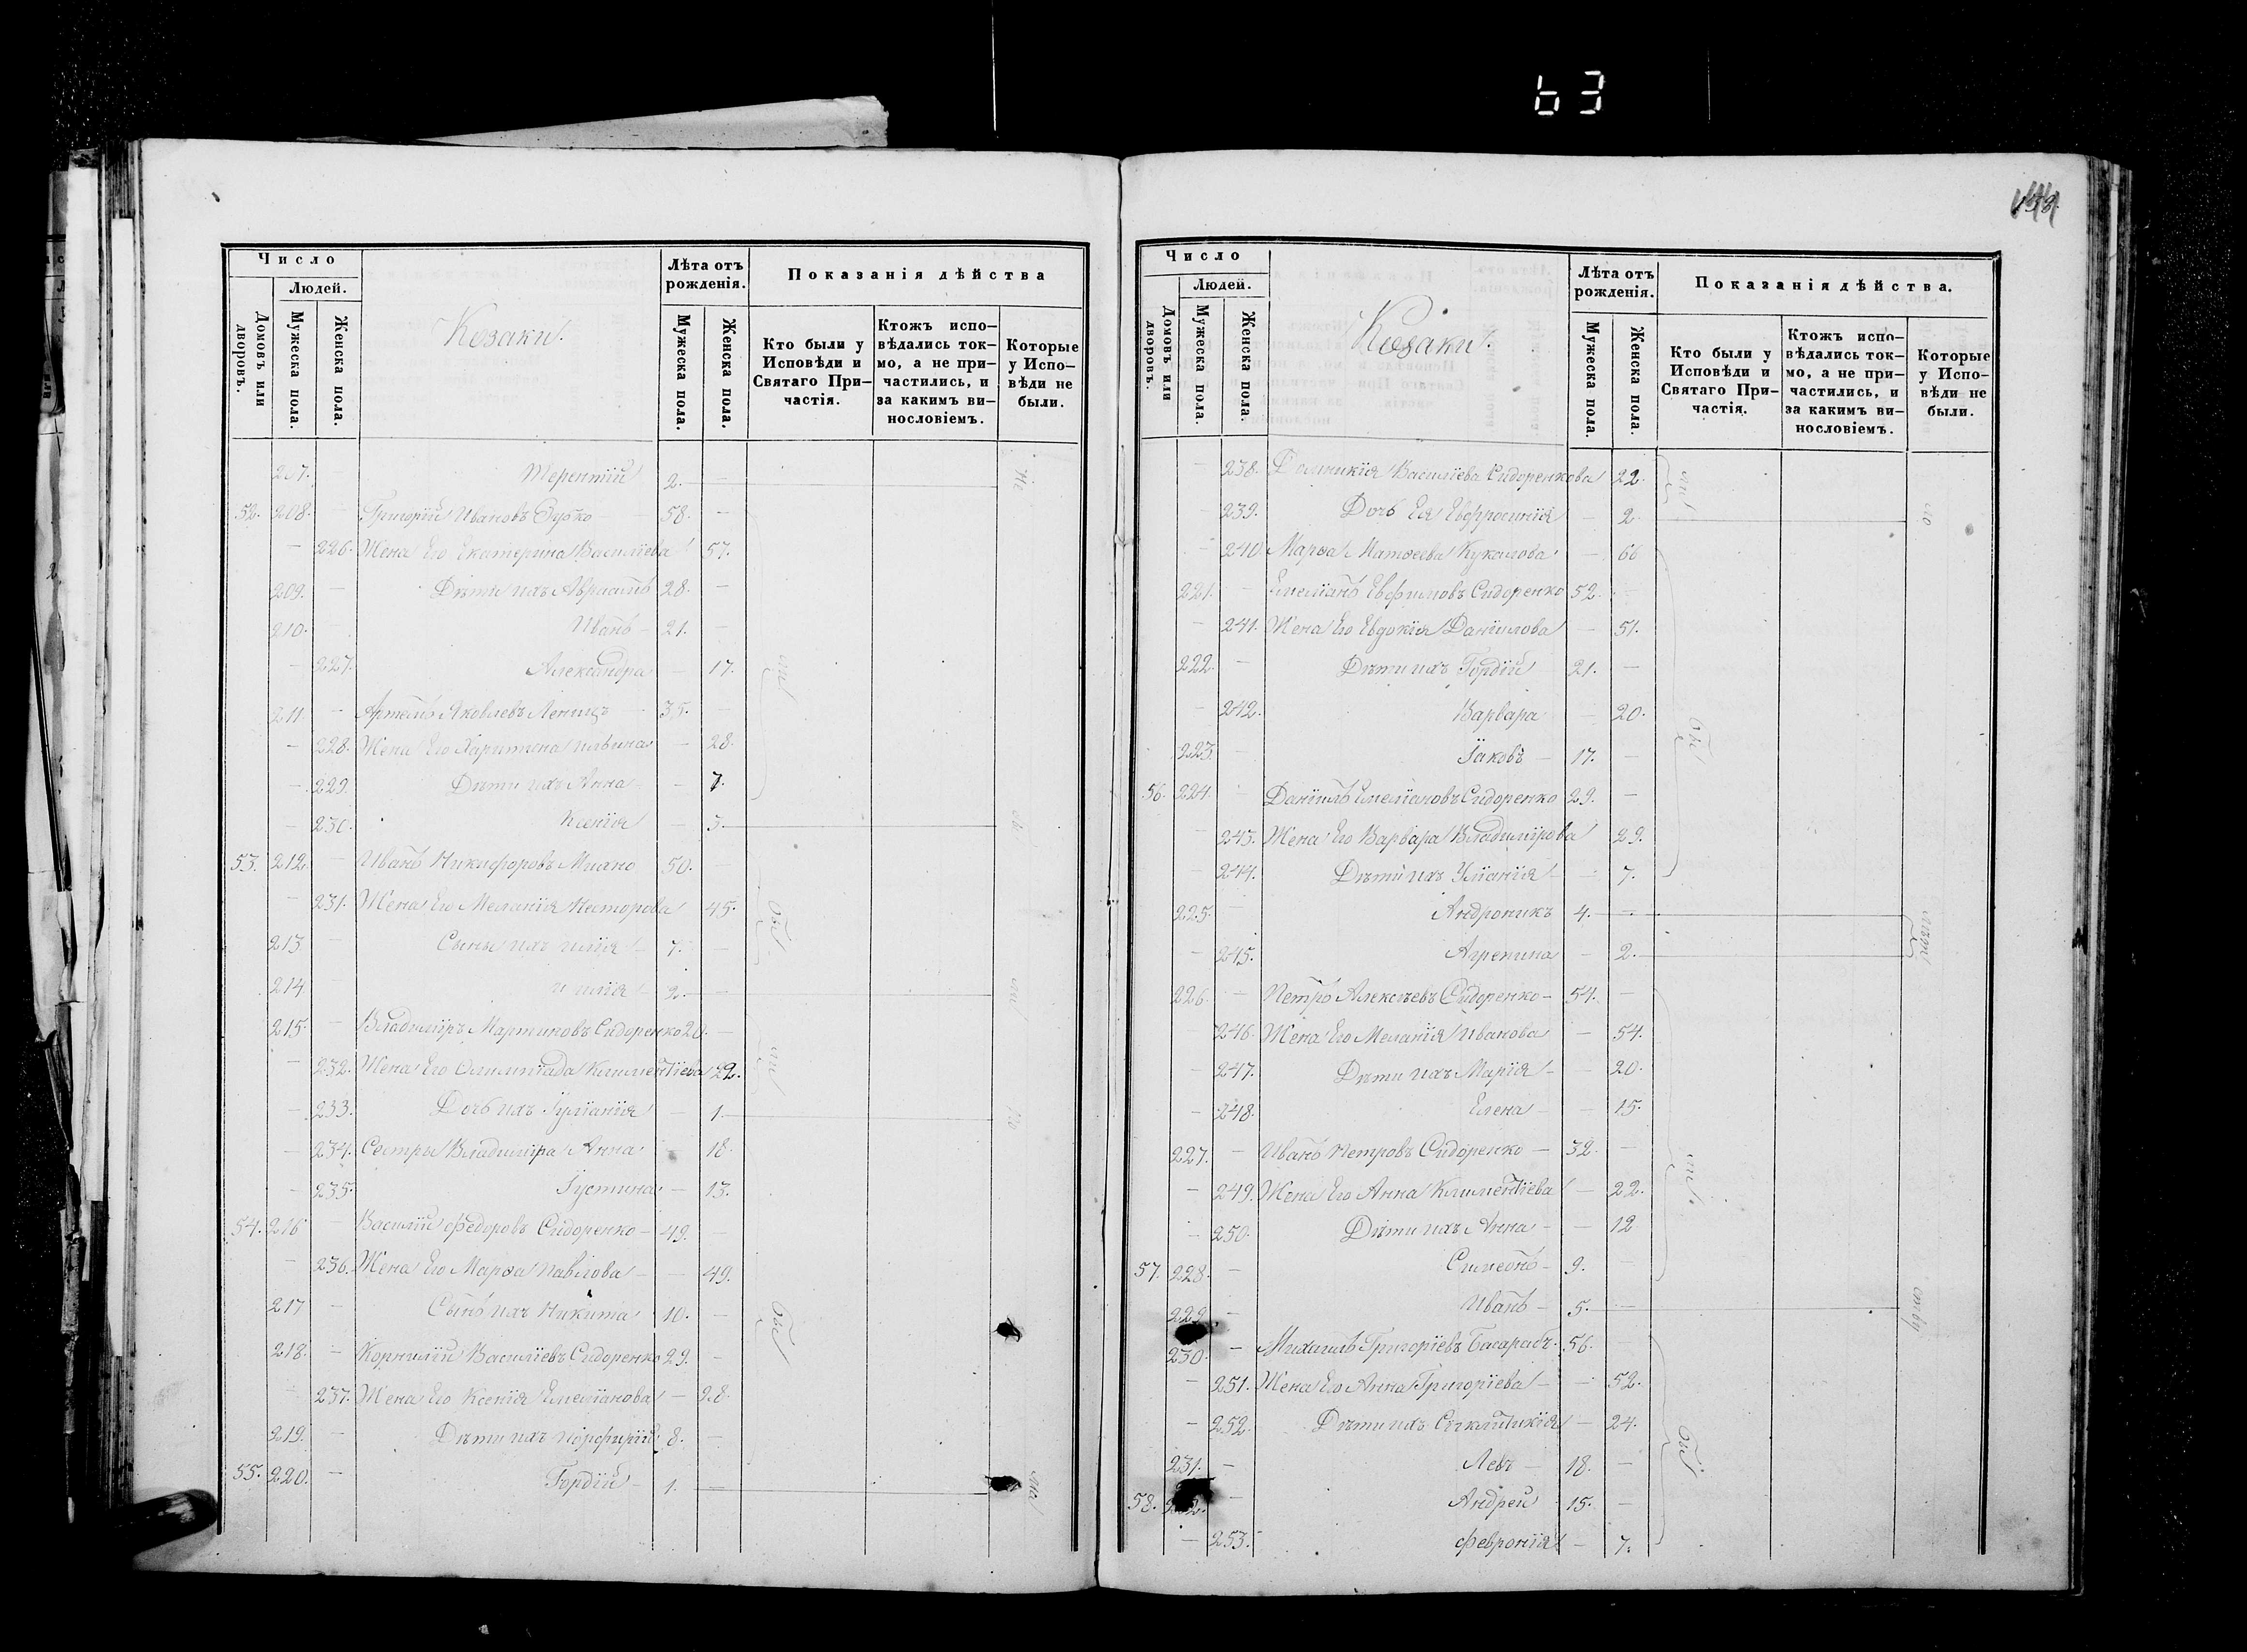 63
Число
Людей.
Домовъ или дворовъ.
Мужеска пола.
Женска пола.
Козаки.
Лѣта отъ рожденія.
Мужеска пола.
Женска пола.
Показанія дѣйства
Кто были у Исповѣди и Святаго Причастія.
Ктожъ исповѣдались токмо, а не причастились, и за какимъ винословіемъ.
Которые у Исповѣди не были.
207. — Терентий 2. —
52. 208. — Григорий Ивановъ Зубко 58. —
— 226. Жена Его Екатерина Василіева 57.
209. — Дѣти ихъ Авраамъ 28. —
210. — Иванъ — 21. —
— 227. Александра — 17.
211. — Артемъ Яковлевъ — 35. —
— 228. Жена Его Харитина Ильина — 28.
— 229. Дѣти ихъ Анна — 7.
— 230. Ксенія — 3.
53. 212. — Иванъ Никифоровъ 50. —
— 231. Жена Его Меланія Несторова 45.
213 — Сыны ихъ Илія — 7. —
214 — Илія — 2. —
215. — Владиміръ Мартиновъ Сидоренко 20. —
— 232. Жена Его Олимпіада Климентіева 22.
— 233. Дочь ихъ Іуліанія — 1.
— 234. Сестры Владиміра Анна — 18.
— 235. Іустина — 13.
54. 216 — Василій Федоровъ Сидоренко — 49. —
— 236. Жена Его Марѳа Павлова — — 49.
217 — Сынъ ихъ Никита 10. —
218. — Корнилій Василіевъ Сидоренко 29. —
— 237. Жена Его Ксенія Емеліанова — 28.
219. — Дѣти ихъ Порфирій 8. —
55. 220. — Гордій — 1. —
Число
Людей.
Домовъ или дворовъ.
Мужеска пола.
Женска пола.
Козаки.
Лѣта отъ рожденія.
Мужеска пола.
Женска пола.
Показанія дѣйства.
Кто были у Исповѣди и Святаго Причастія.
Ктожъ исповѣдались токмо, а не причастились, и за какимъ винословіемъ.
Которые у Исповѣди не были.
— 238. Домникія Василіева Сидоренкова 22.
— 239. Дочь Ея Евфросинія — 2.
— 240 Марѳа Матѳеева Кукалова — 66
221. — Емеліанъ Евфимовъ Сидоренко 52. —
— 241. Жена Его Евдокія Даніилова — 51.
222. — Дѣти ихъ Гордій 21. —
— 242. Варвара — 20.
223. — Іаковъ — 17. —
56. 224 — Даніилъ Емеліановъ Сидоренко 29. —
— 243. Жена Его Варвара Владимірова 29.
— 244. Дѣти ихъ Уліанія — — 7.
225. — Андроникъ 4. —
— 245. Агрепина — 2.
226. — Петръ Алексѣевъ Сидоренко — 54. —
246. Жена Его Меланія Иванова — 54.
— 247. Дѣти ихъ Марія — — 20.
— 248. Елена — — 15.
227. — Иванъ Петровъ Сидоренко — 32. —
— 249. Жена Его Анна Климентіева — 22.
— 250. Дѣти ихъ Анна — — 12
57. 228. — Симеонъ — 9. —
229. — Иванъ — 5. —
230. — Михаилъ Григоріевъ Басарабъ. 56. —
— 251. Жена Его Анна Григоріева — — 52.
— 252. Дѣти ихъ — 24.
231. — Левъ — 18. —
58. — Андрей 15. —
— 253. Февронія — 7.